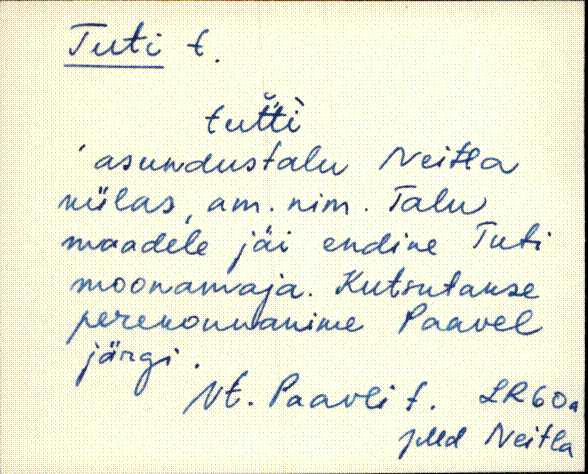 Tuti t.
tut̆ti̇̀
asundustalu Neitla
külas, am. nim. Talu
maadele jäi endine Tuti
moonamaja. Kutsutakse
perekonnanime Paavel
järgi.
Vt. Paavli t. LR60a
Neitla